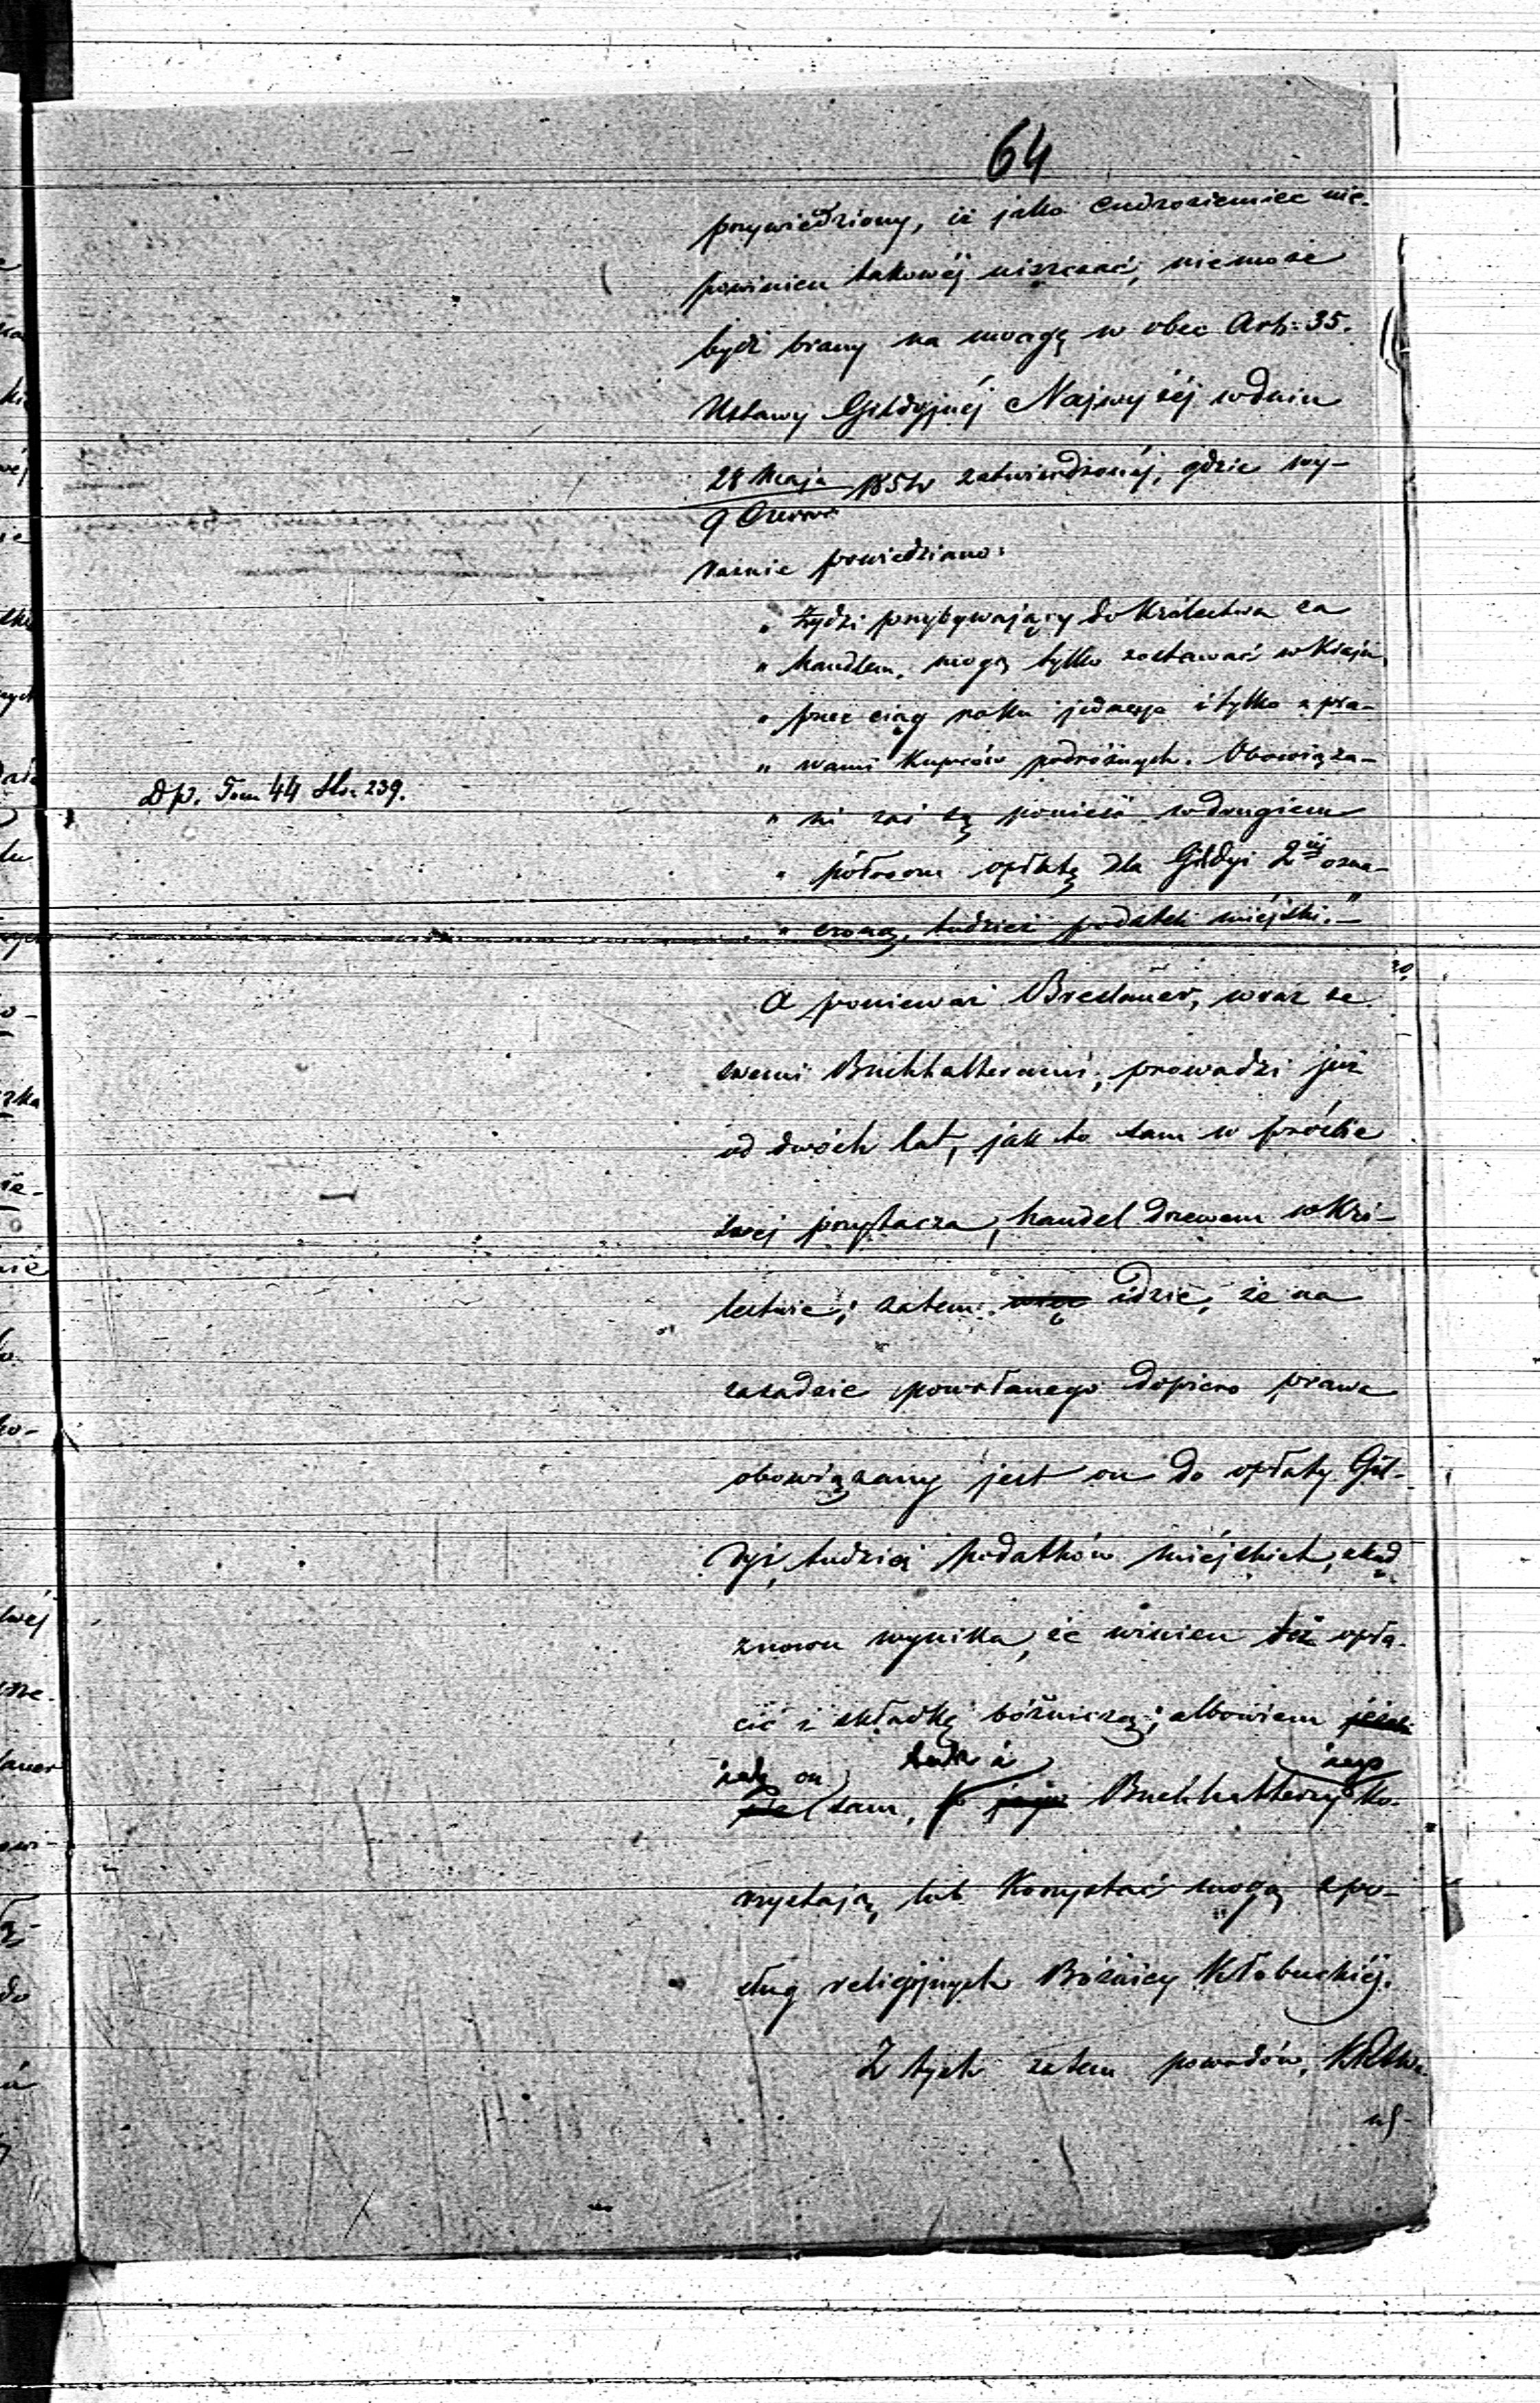 64
przywiedziony, iż jako Cudzoziemiec nie-
powinien takowéj uiszczać, niemoże
bydź brany na uwagę w obec Art: 35.
Ustawy Gildyjnéj Najwyżéj w dniu
28 Maja
9 Czerwca 1851 r zatwierdzonéj, gdzie wy-
raźnie powiedziano:
„ Żydzi przybywający do Królestwa za
„ handlem, mogą tylko zostawać w Kraju
„ przez ciąg roku jednego i tylko z pra-
„ wami Kupców podróżnych. Obowiąza-
Dp. Tom 44 Str 239.
„ ni zaś są ponieść w drugiem
„ półroczu opłatę dla Gildyi 2éj ozna-
„ czoną, tudzież podatek miéjski."–
A ponieważ Breslauer, wraz ze
swemi Buchhalterami, prowadzi już
od dwóch lat, jak to sam w prośbie
swej przytacza, handel drzewem w Kró-
lestwie; zatem więc idzie, że na
zasadzie powołanego dopiero prawa
obowiązany jest on do opłaty Gil-
dyi, tudzież podatków miéjskich, skąd
znowu wynika, że winien też opła-
cić i składkę bóżniczą; albowiem
on tudzież jego
sam, jego Buchhalterzy ko-
rzystają, lub Korzystać mogą z po-
sług religijnych Bóżnicy Kłobuckiéj.
Z tych zatem powodów,